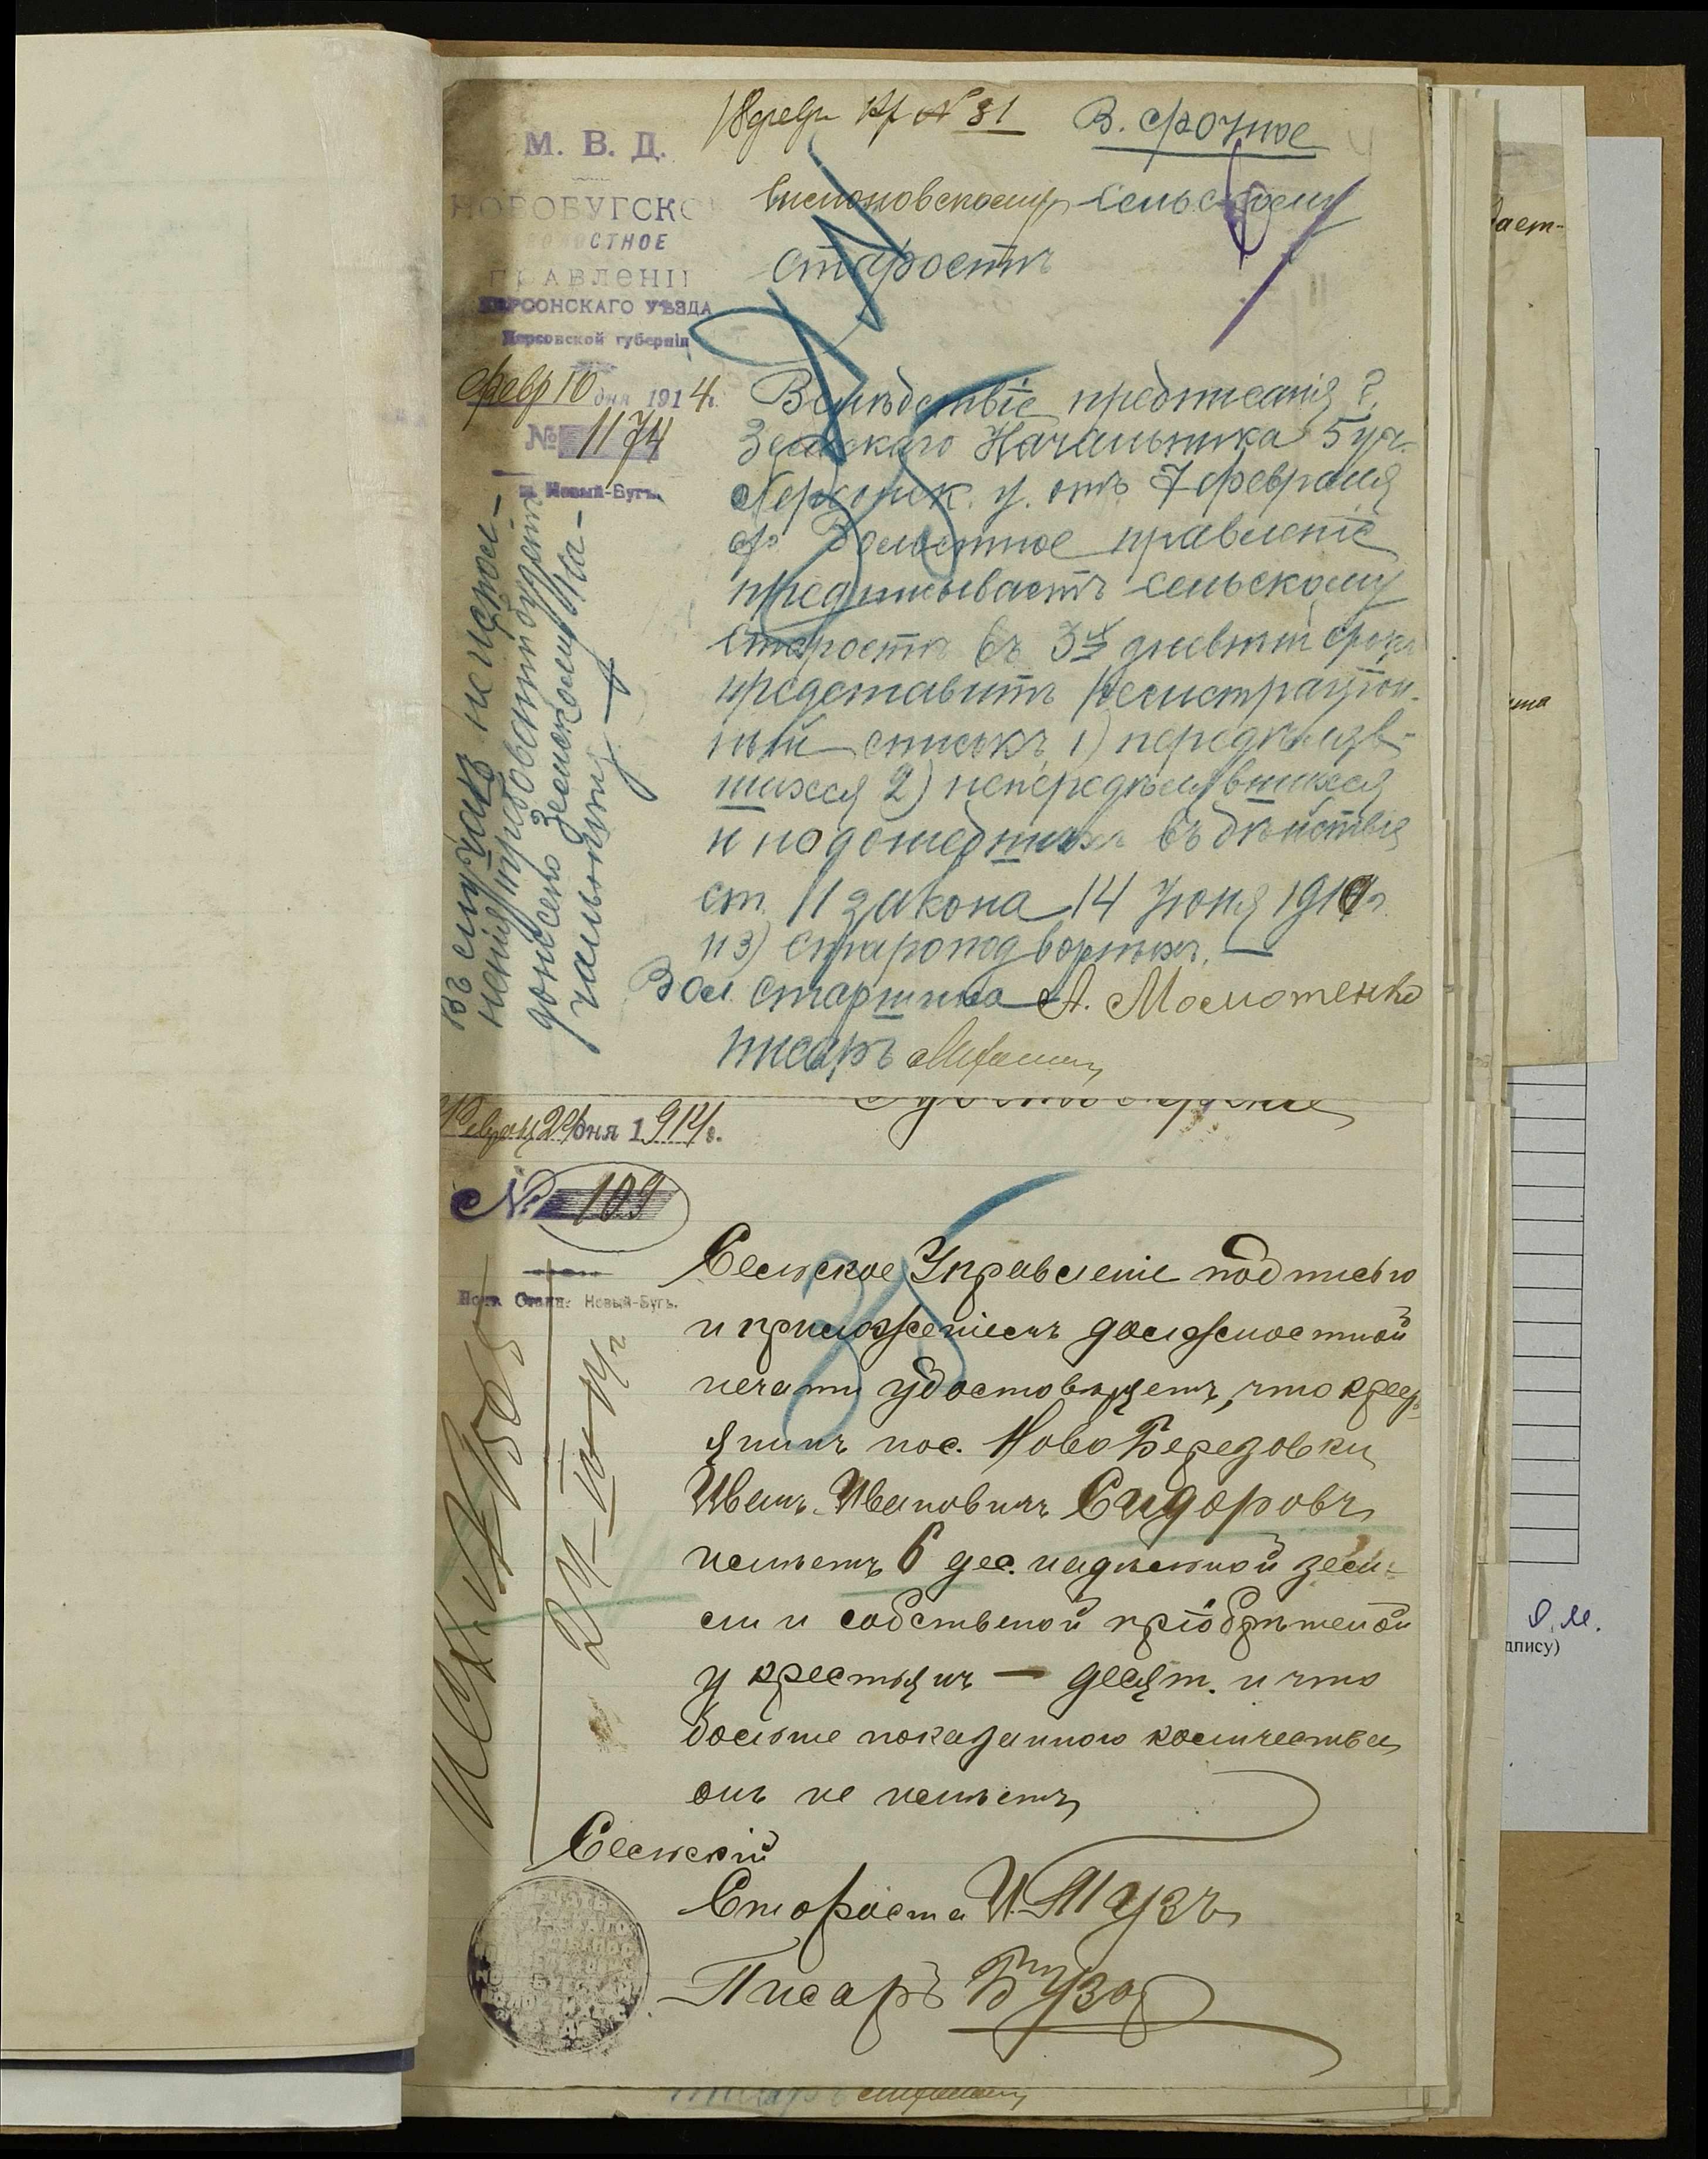 18 февр Кр № 31 В. срочное
М. В. Д.
НОВОБУГСКО
ВОЛОСТНОЕ
ПРАВЛЕНІ
ХЕРСОНСКАГО УѢЗДА
Херсонской губерніи
февр 10 дня 1914 г.
№ 1174
п. Новый-Бугъ.
сельскому
старостѣ
Вслѣдствіе предписанія Г.
Земскаго Начальника 5 уч.
Херсонск. у. отъ 7 февраля
с/г Волостное правленіе
предписываетъ сельскому
старостѣ въ 3х дневный срокъ
представить регистраціон-
ный списокъ 1) передѣлив-
шихся 2) непередѣлявшихся
и подошедшихъ въ дѣйствіе
ст. 11 закона 14 Іюня 1910 г.
и 3) староподворныхъ.
Вол. старшина А. Молотенко
писарь
Въ случаѣ неиспол-
ненія требованія будетъ
донесено Земскому На-
чальнику
Февраля 24 дня 1914 г.
№ 109
Почт. Станц. Новый-Бугъ.
24-II-14 г
Сельское Управленіе подписью
и приложеніемъ должностной
печати удостовѣряетъ, что крест
янинъ пос. Ново Березовки
Иванъ Ивановичъ Сидоровъ
имѣетъ 6 дес. надѣльной зем-
ли и собственой пріобрѣтеной
у крестьянъ — десят. и что
больше показаннаго количества
онъ не имѣетъ
Сельскій
Староста И. Таузъ
Писарь Бузо
писарь